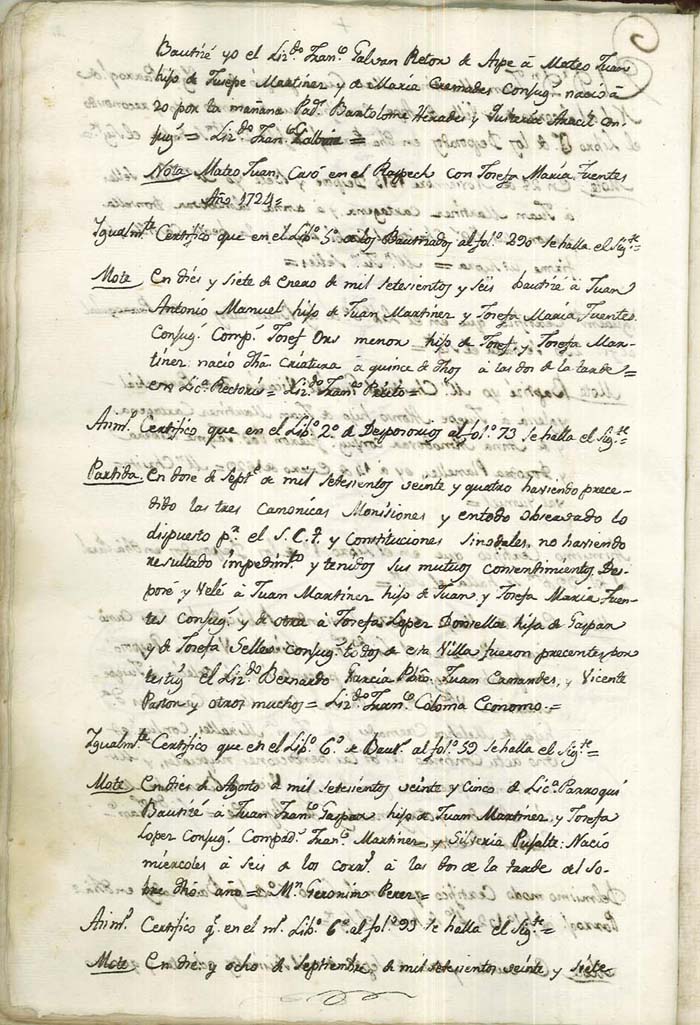 Bautizé yo el Liz.do Fran.co Galvan Retor de Aspe â Mateo Juan
hijo de Jusepe Martinez y de Maria Cremades Conjug.s nació â
20 por la mañana Pad.s Bartolome Herades y Con-
jug.s = Liz.do Fran.co Galbian =
Nota Mateo Juan, Casó en el Raspech con Josefa Maria Fuentes
Año 1724=
Igualm.te Certifico que en el Lib.o 5.o de los Bautizados al fol.o 290 se halla el Sig.te=
Mote En diés y siete de Enero de mil setesientos y seis bautizé â Juan
Antonio Manuel hijo de Juan Martinez y Josefa Maria Fuentes
Conjug.s Comp.s Josef Ors menor hijo de Josef, y Josefa Mar-
tinez nacio dha. Criatura â quince de dhos â las dos de la tarde
en Lic.a Rectoris = Liz.do Fran.co =
An.m.o Certifico que en el Lib.o 2.o de Desposorios al fol.o 73 se halla el Sig.te=
Partida En dose de Sept.e de mil setesientos veinte y quatro haviendo prece-
dido las tres Canonicas Monisiones y entodo observado lo
dispuesto p.r el S. C. T. y Constituciones Sinodales, no haviendo
resultado impedim.to y tenidos sus mutuos consentimientos, Des-
posé y Velé â Juan Martinez hijo de Juan, y Josefa Maria Fuen-
tes Conjug.s y de otra â Josefa Lopez Donsella hija de Gaspar
y de Josefa Selles Conjug.s todos de esta Villa fueron precentes por
testig.s el Liz.do Bernardo Garcia Pbro. Juan Carrandes, y Vicente
Pastor y otros muchos = Liz.do Juan.o Coloma Economo. =
Igualm.te Certifico que en el Lib.o 6.o de Baut.s al fol.o 59 se halla el Sig.te=
Mote En dies de Agosto de mil setesientos veinte y cinco de Lic.a Parroqui
Bautizé â Juan Fran.co Gaspar hijo de Juan Martinez, y Josefa
Lopez Conjug.s Compad.s Fran.co Martinez, y Silveria Pujalte: Nació
miércoles â seis de los corr.s â las dos de la tarde del so-
bre dho año = M.n Geronimo Perez =
An.m.o Certifico q.e en el m.o Lib.o 6.o al fol.o 99 se halla el Sig.te=
Mote En diez y ocho de Septiembre de mil setesientos veinte y siete